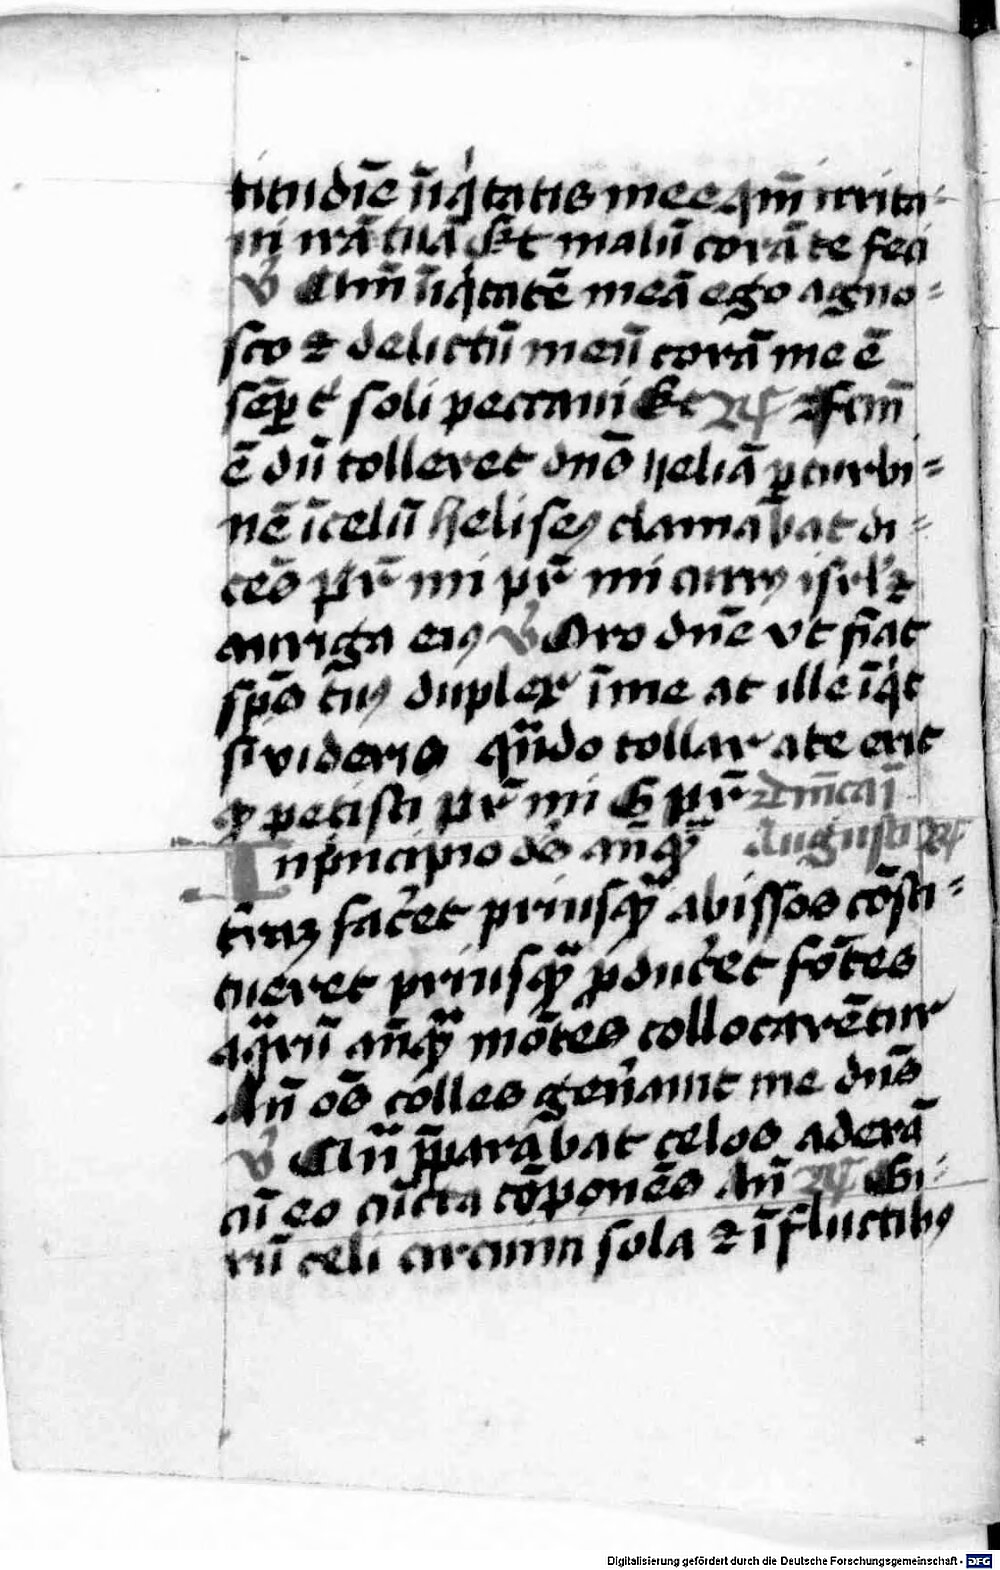 titudīe īiq̇tatis mee qm̄ irrita⸗
ui irā tuā & et malū corā te feci
℣ Qm̄ īiq̇tatē meā ego agno⸗
sco ⁊ delictū meū corā me ē
sēꝑ t̉ soli peccaui & ℟ Fcm̄
ē dū tolleret dn̄s heliā ꝑ turbi⸗
nē ī celū heliseꝯ clamabat di⸗
cēs pr̄ mi pr̄ mi currꝯ isrl̓ ⁊
auriga eiꝯ ℣ Oro dn̄e vt fiat
sp̄s tuꝯ duplex ī me at ille īq̇t
si videris qn̄do tollar a te erit
qͦ petisti pr̄ mi G pr̄ Dn̄ica j
In pͥncipio dˢ an̄qͣ Augusti ℟
t̓rā fac̓et priusqͣ abissos cōsti⸗
tueret priusqͣ ꝓduc̓et fōtes
aqͣrū an̄qͣ mōtes collocarētur
An̄ oēs colles gen̓auit me dn̄s
℣ Qn̄ p̄parabat celos aderā
cū eo cūcta cōponēs An̄ ℟ Gi⸗
rū celi circuiui sola ⁊ ī fluctibꝯ
Digitalisierung gefördert durch die Deutsche Forschungsgemeinschaft - DFG